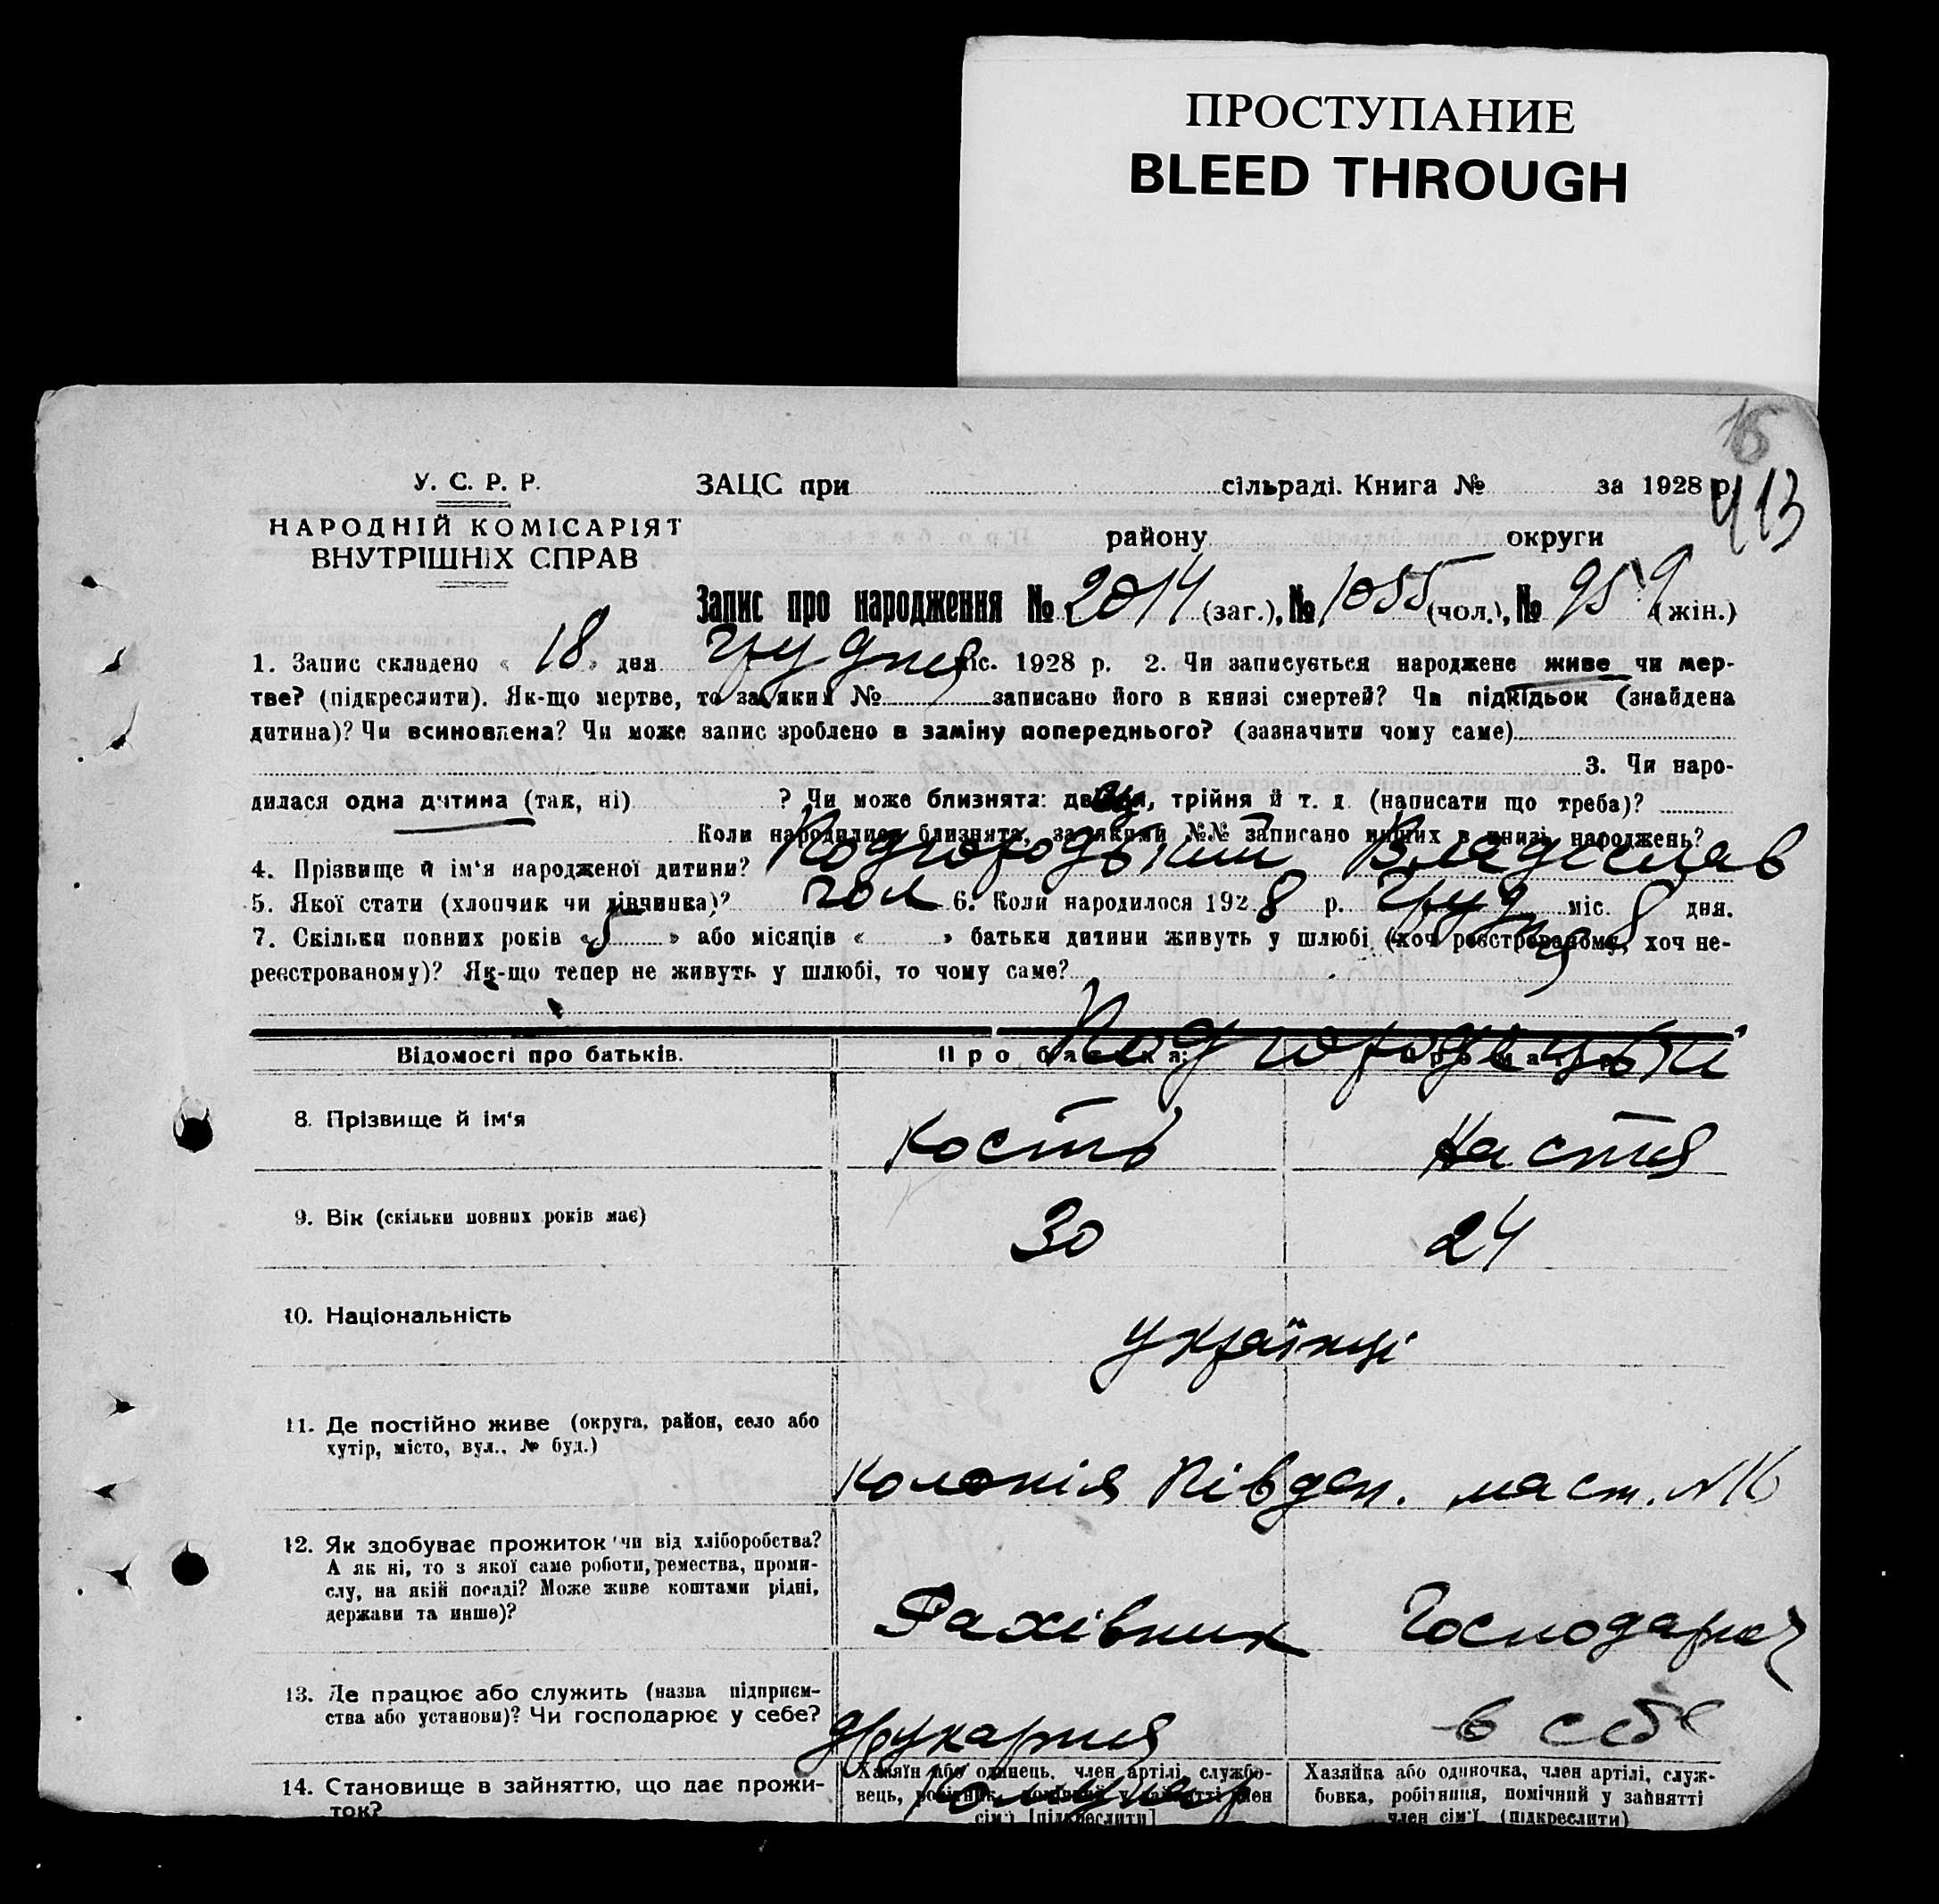 ПРОСТУПАНИЕ
BLEED THROUGH
15
413
У. С. Р. Р.
НАРОДНІЙ КОМІСАРІЯТ
ВНУТРІШНІХ СПРАВ
ЗАЦС при сільраді. Книга № за 1928 р.
району округи
Запис про народження № 2014 (заг.), № 1055 (чол.), № 959 (жін.)
1. Запис складено « 18 » дня грудня міс. 1928 р. 2. Чи записується народжене живе чи мер-
тве? (підкреслити). Як-що мертве, то за яким № записано його в книзі смертей? Чи підкідьок (знайдена
дитина)? Чи всиновлена? Чи може запис зроблено в заміну попереднього? (зазначити чому саме)
3. Чи наро-
дилася одна дитина (так, ні) ? Чи може близнята: двійня, трійня й т. д. (написати що треба)?
Коли народилися близнята, за якими №№ записано инших в книзі народжень?
4. Прізвище й ім'я народженої дитини? Подгородецький Владислав
5. Якої стати (хлопчик чи дівчинка)? чол 6. Коли народилося 1928 р. грудня міс. 8 дня.
7. Скільки повних років « 5 » або місяців « » батьки дитини живуть у шлюбі (хоч реєстрованому, хоч не-
реєстрованому)? Як-що тепер не живуть у шлюбі, то чому саме?
Відомості про батьків. Про батька: Про матір:
Подгородецькі
8. Прізвище й ім'я Кость Настя
9. Вік (скільки повних років має) 30 24
10. Національність українці
11. Де постійно живе (округа, район, село або
хутір, місто, вул., № буд.)
Колонія Півден. маст. №16
12. Як здобуває прожиток чи від хліборобства?
А як ні, то з якої саме роботи, ремества, проми-
слу, на якій посаді? Може живе коштами рідні,
держави та инше)?
Фахівник Господарює
13. Де працює або служить (назва підприєм-
ства або установи)? Чи господарює у себе?
друкарня в себе
14. Становище в зайняттю, що дає прожи-
ток?
Хазяїн або одинець, член артілі, службо-
вець, робітник, помічний у зайнятті член
сім'ї [підкреслити]
Хазяйка або одиночка, член артілі, служ-
бовка, робітниця, помічний у зайнятті
член сім'ї (підкреслити)